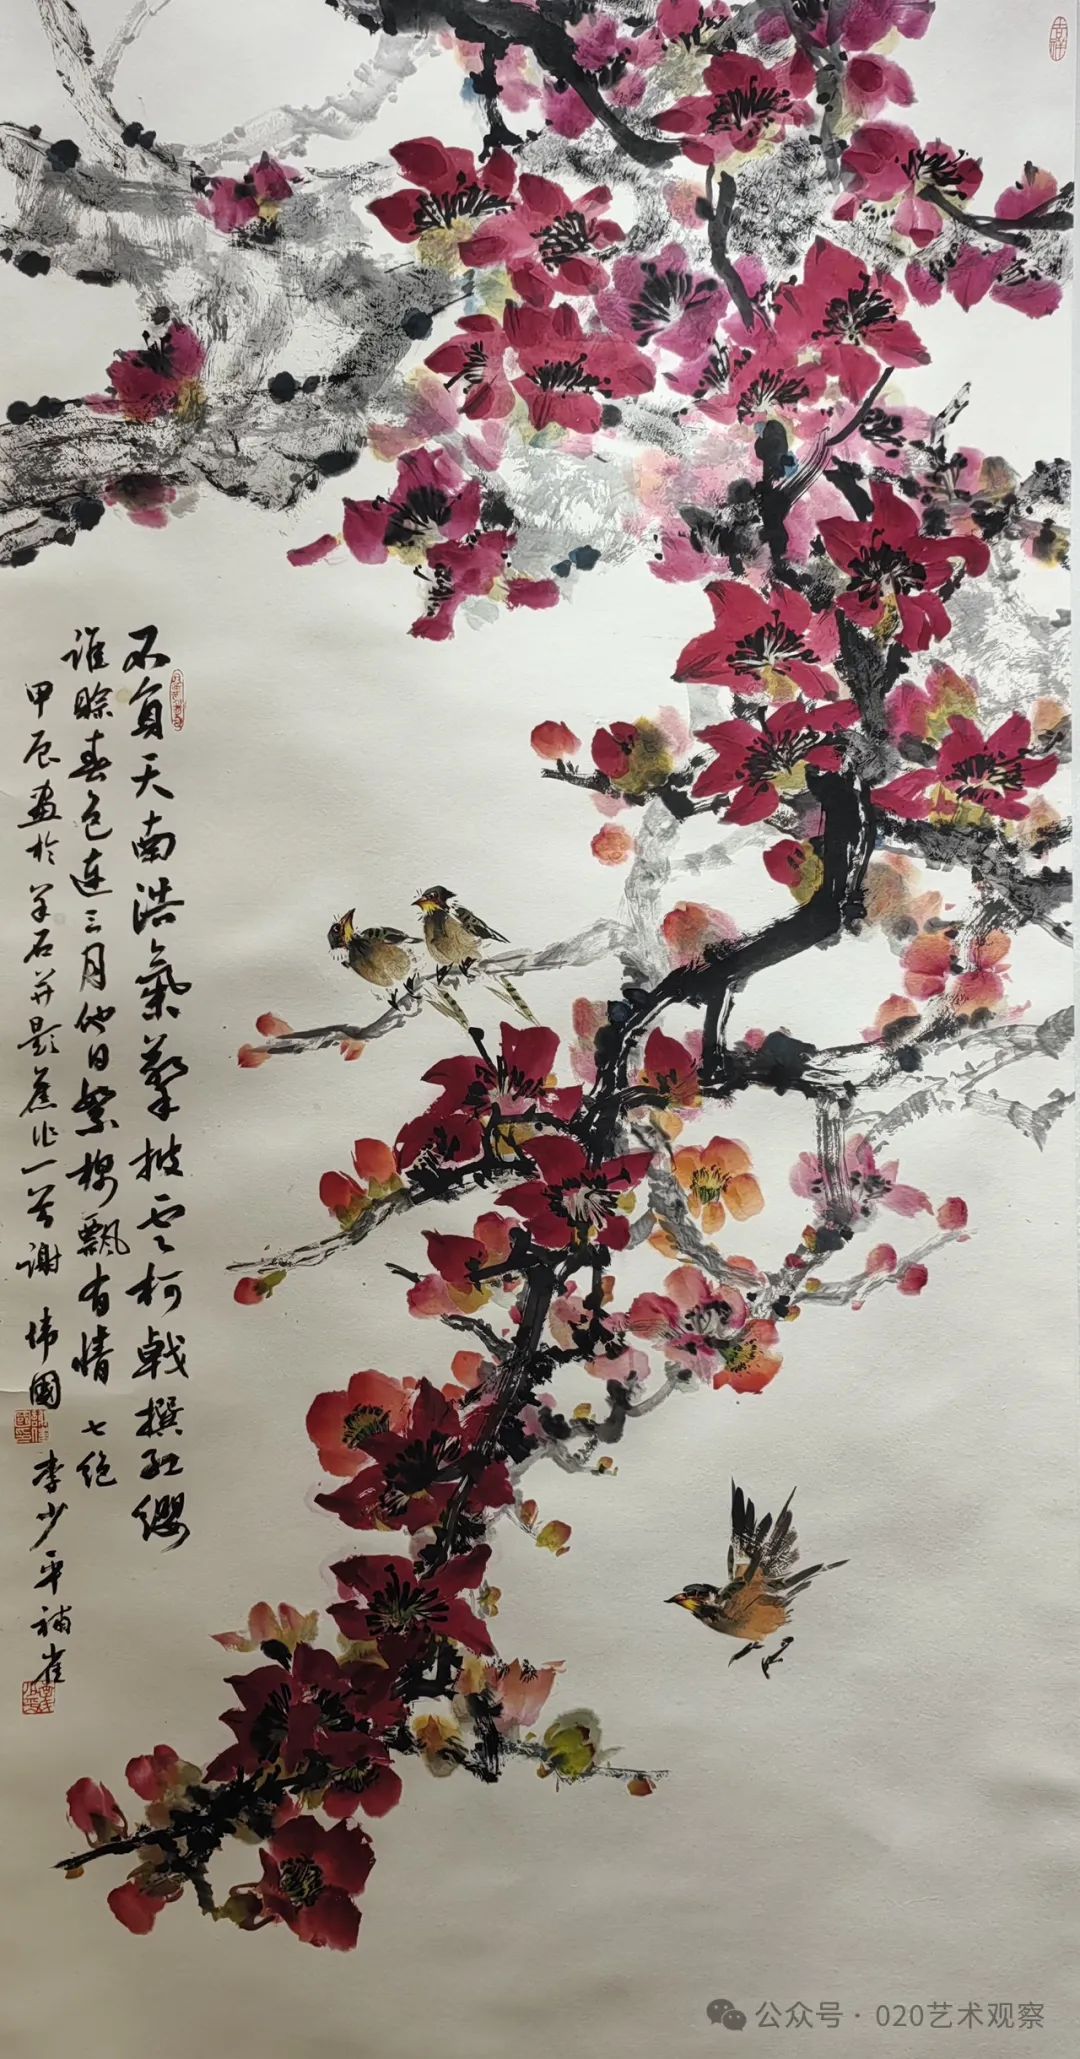 不負天南浩氣擎披雲柯戟撰紅纓
誰賒春色連三月他日絮棉飄有情 七絕
甲辰畫於羊石并題舊作一首 謝偉國 李少平補雀
公众号 · 020艺术观察